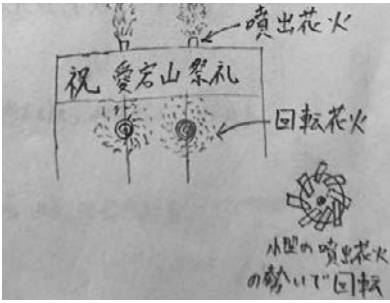 噴出花火
祝 愛宕山祭礼
回転花火
小型の噴出花火
の勢いで回転